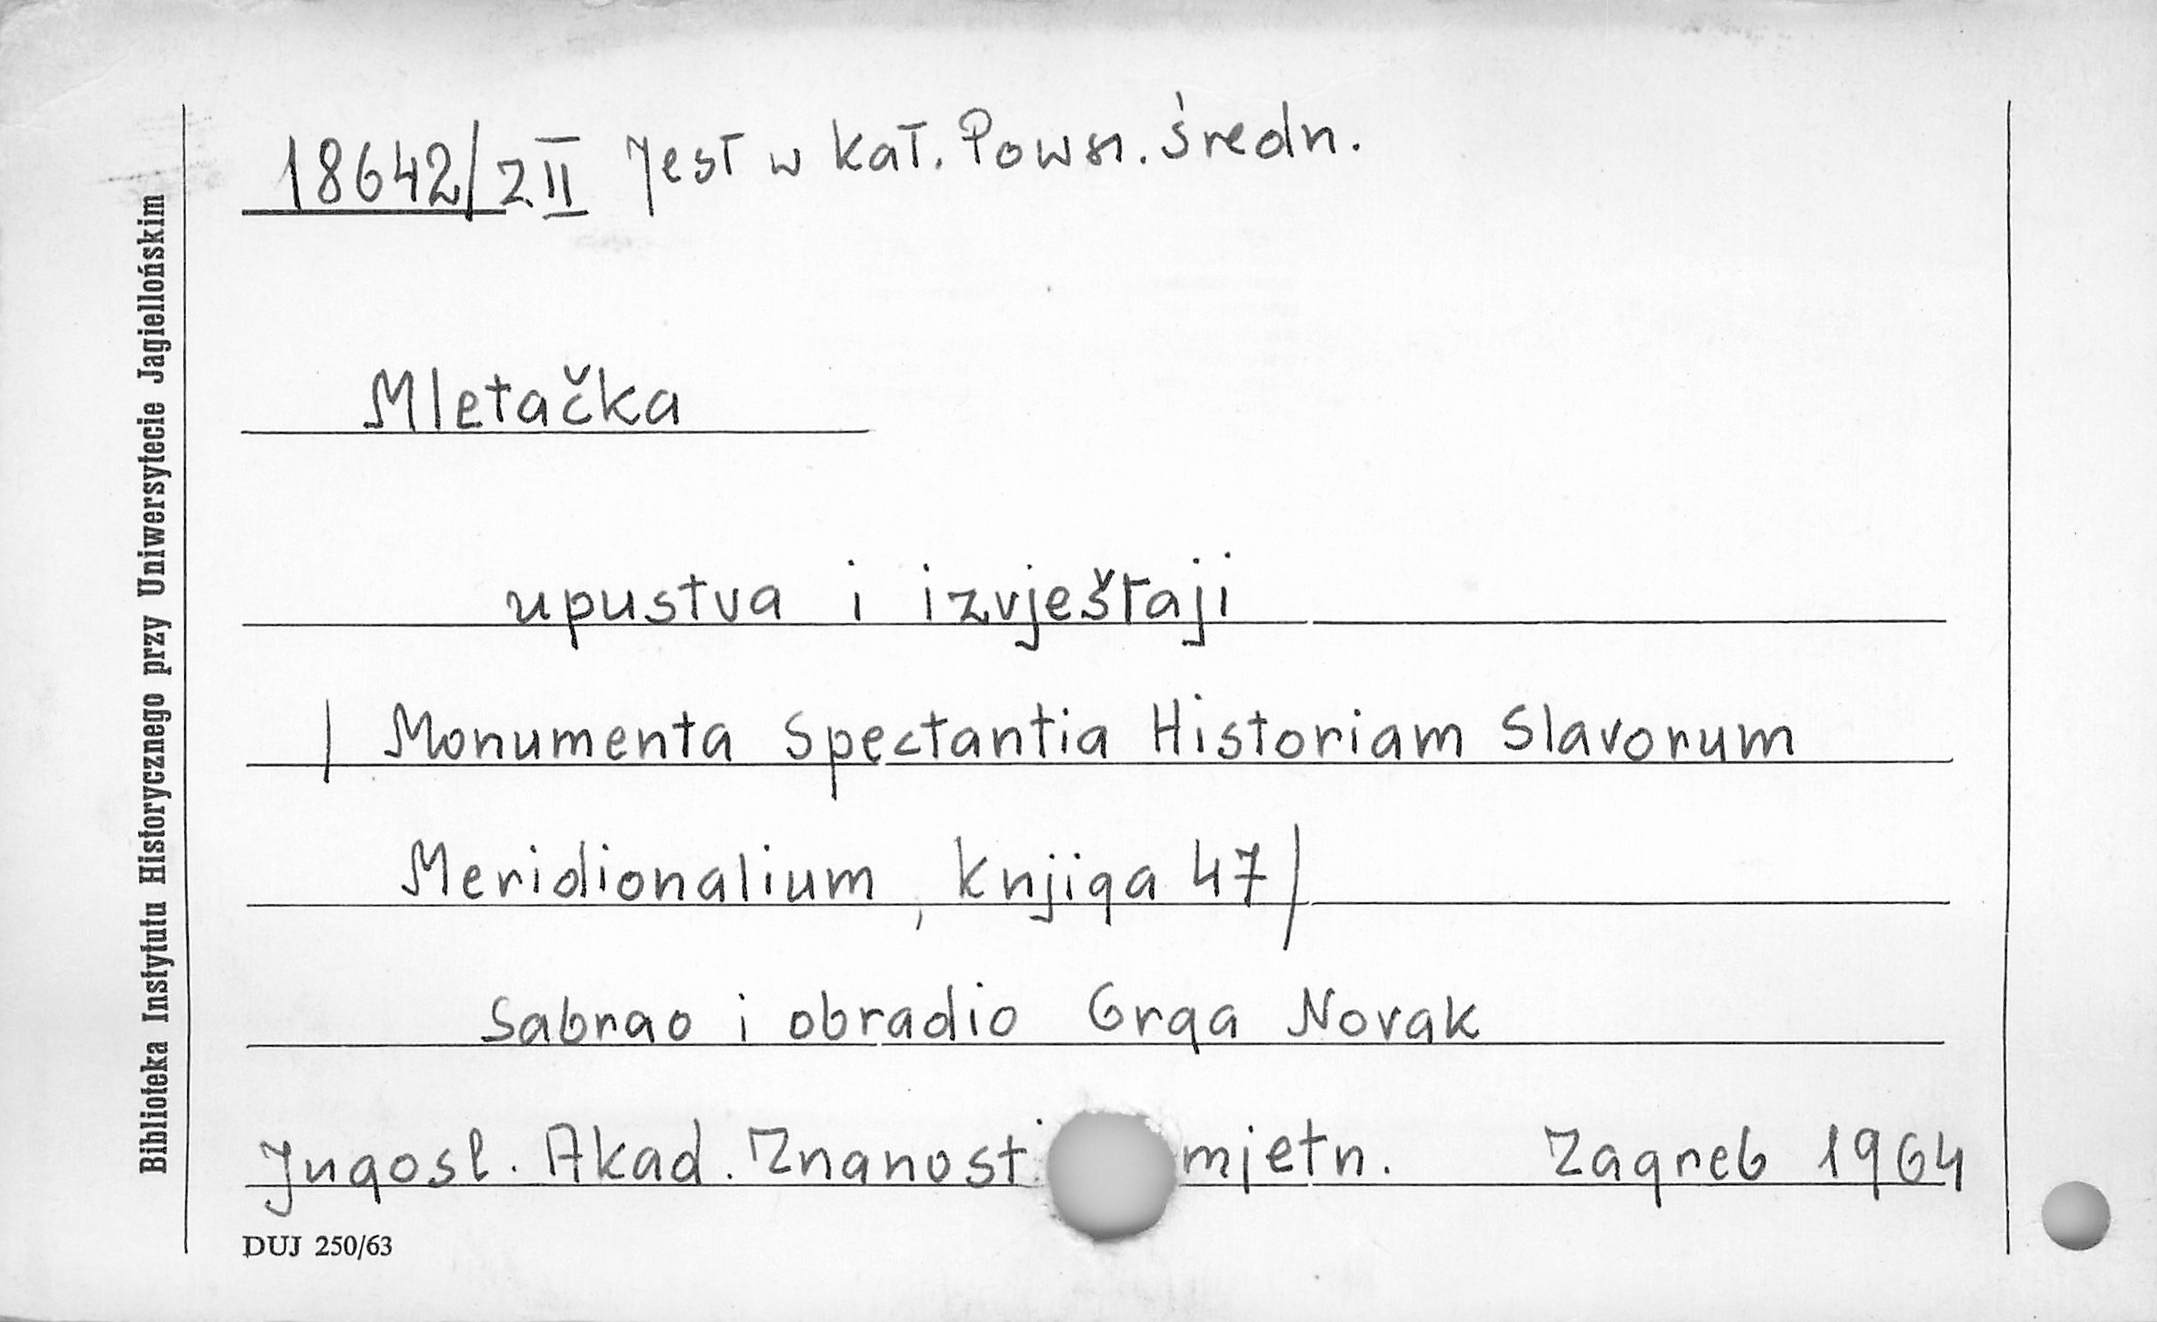 18642/z II Jest w kat. Powsz. średn.
Mletačka
upustva i izvještaji
/ Monumenta Spectantia Historiam Slavorum
Meridionalium, knjiga 47/
Sabrao i obradio Grga Novak
Jugosl. Akad. Znanosti mjetn. Zagreb 1964
DUJ 250/63
Biblioteka Instytutu Historycznego przy Uniwersytecie Jagiellońskim